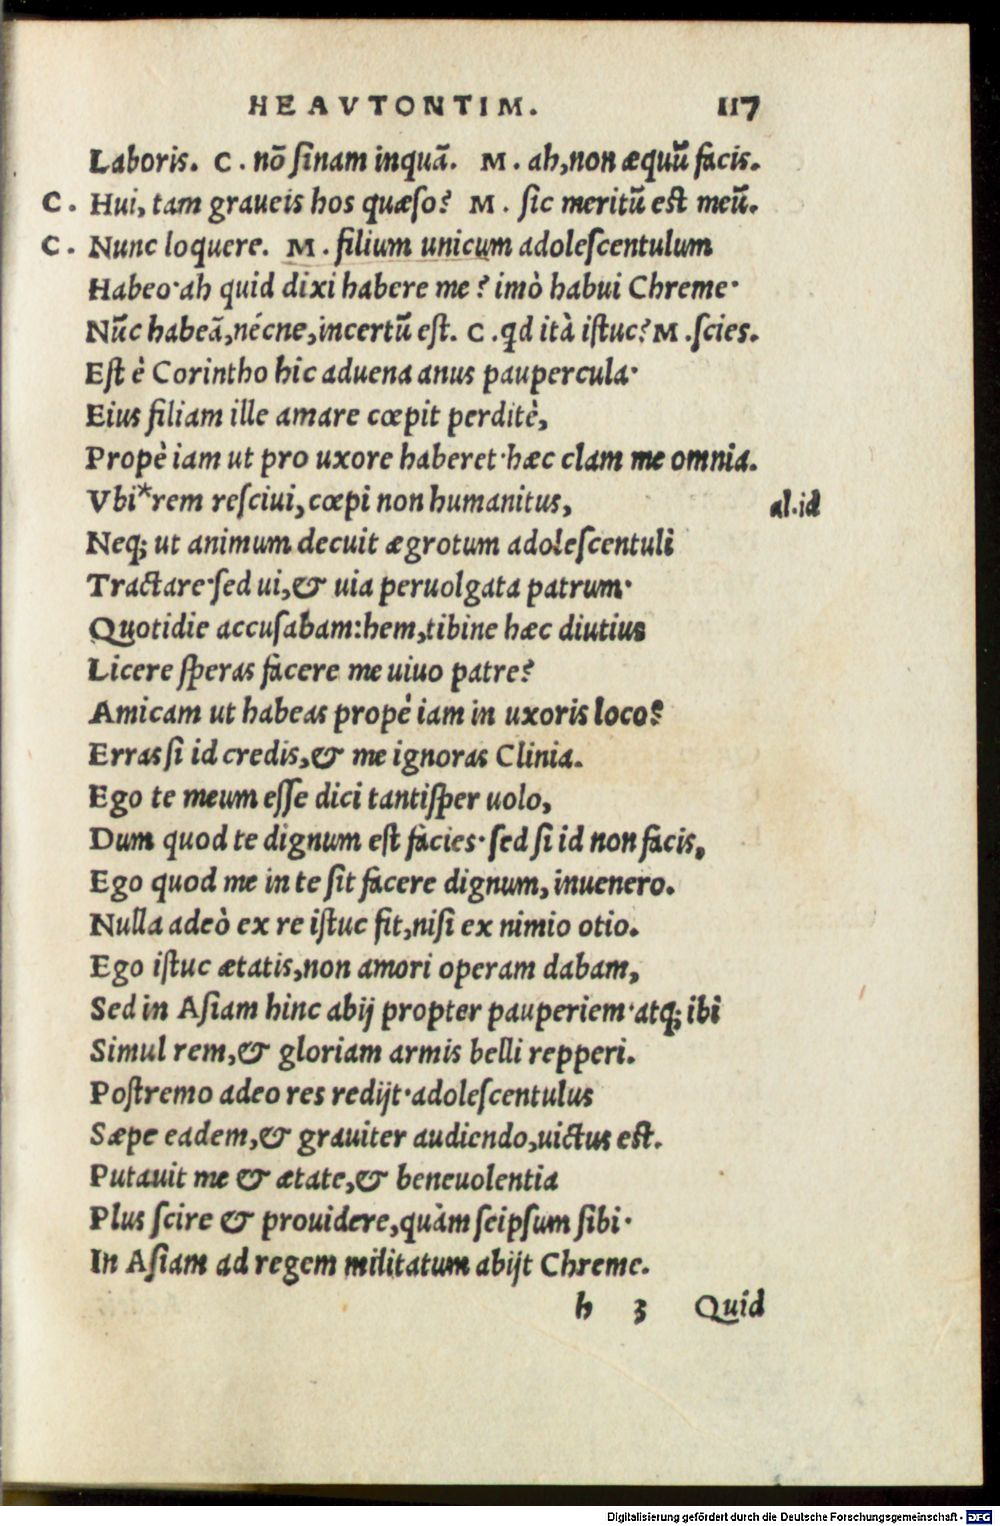 HEAVTONTIM. 117
Laboris. C. nō ſinam inquā. M. ah, non æquū facis.
C. Hui, tam graueis hos quæſo? M. ſic meritū est meū.
C. Nunc loquere. M. filium unicum adoleſcentulum
Habeo·ah quid dixi habere me? imò habui Chreme·
Nūc habeā, nécne, incertū eſt. C. qd ità iſtuc? M. ſcies.
Eſt è Corintho hic aduena anus paupercula·
Eius filiam ille amare cœpit perditè,
Propè iam ut pro uxore haberet·hæc clam me omnia.
Vbi*rem reſciui, cœpi non humanitus, al.id
Neq; ut animum decuit ægrotum adoleſcentuli
Tractare·ſed ui, & uia peruolgata patrum·
Quotidie accuſabam: hem, tibine hæc diutius
Licere ſperas facere me uiuo patre?
Amicam ut habeas propè iam in uxoris loco?
Erras ſi id credis, & me ignoras Clinia.
Ego te meum eſſe dici tantiſper uolo,
Dum quod te dignum eſt facies·ſed ſi id non facis,
Ego quod me in te ſit facere dignum, inuenero.
Nulla adeò ex re iſtuc fit, niſi ex nimio otio.
Ego iſtuc ætatis, non amori operam dabam,
Sed in Aſiam hinc abij propter pauperiem·atq; ibi
Simul rem, & gloriam armis belli repperi.
Poſtremo adeo res redijt·adoleſcentulus
Sæpe eadem, & grauiter audiendo, uictus eſt.
Putauit me & ætate, & beneuolentia
Plus ſcire & prouidere, quàm ſeipſum ſibi·
In Aſiam ad regem militatum abijt Chreme.
h 3 Quid
Digitalisierung gefördert durch die Deutsche Forschungsgemeinschaft - DFG